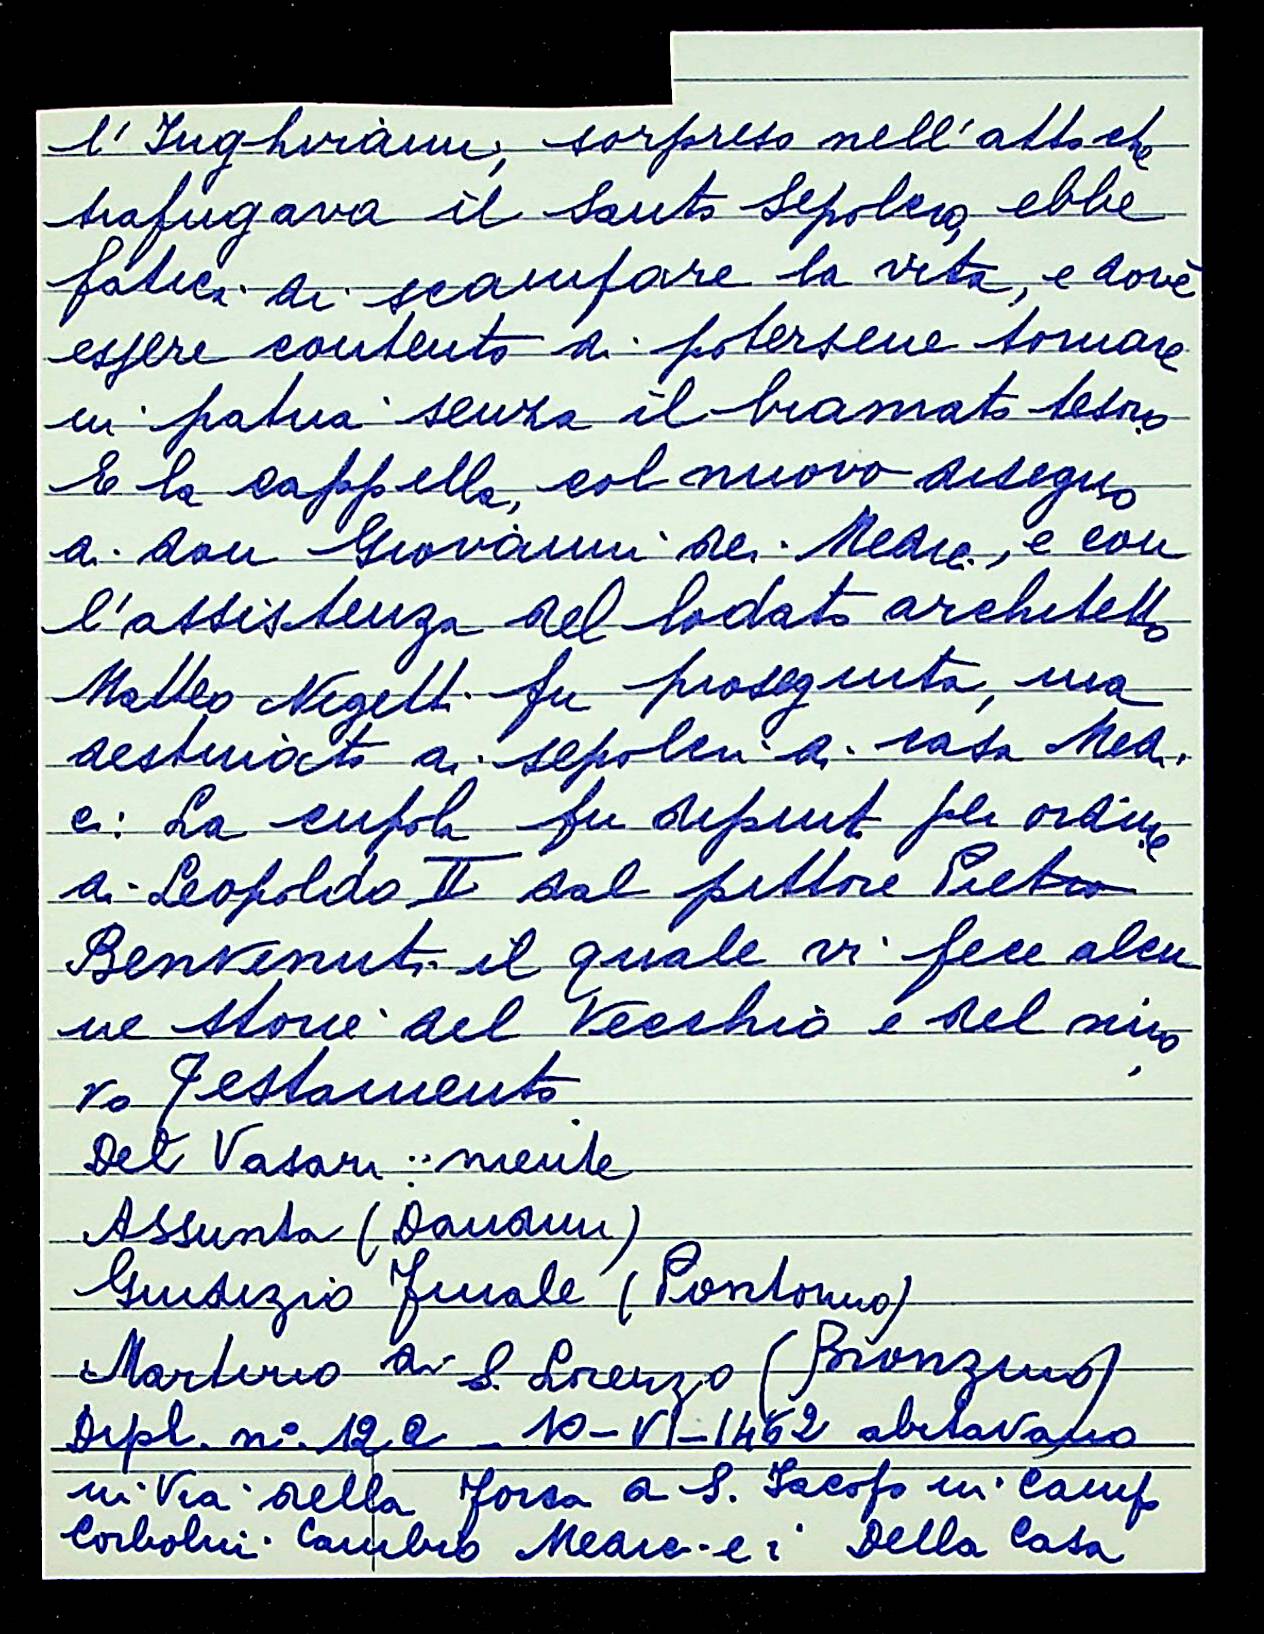 l'Inghirami, sorpreso nell'atto che
trafugava il Santo Sepolcro, ebbe
fatica di scampare la vita, e dovè
essere contento di potersene tornare
in patria senza il bramato tesoro
E la cappella, col nuovo disegno
di don Giovanni dei Medici, e con
l'assistenza del lodato architetto
Matteo Nigetti fu proseguita, ma
destinata a sepolcri di casa Medi
ci: La cupola fu dipinta per ordine
di Leopoldo II dal pittore Pietro
Benvenuti il quale vi fece alcu
ne storie del Vecchio e del nuo
vo Testamento
Del Vasari : niente
Assunta (Danдini)
Giudizio Finale (Pontormo)
Martirio di S. Lorenzo (Bronzino)
Dipl. n°. 122 - 10-VI-1462 abitavano
in Via della Forca a S. Jacopo in Camp
Corbolini Cambio Medici e i Della Casa